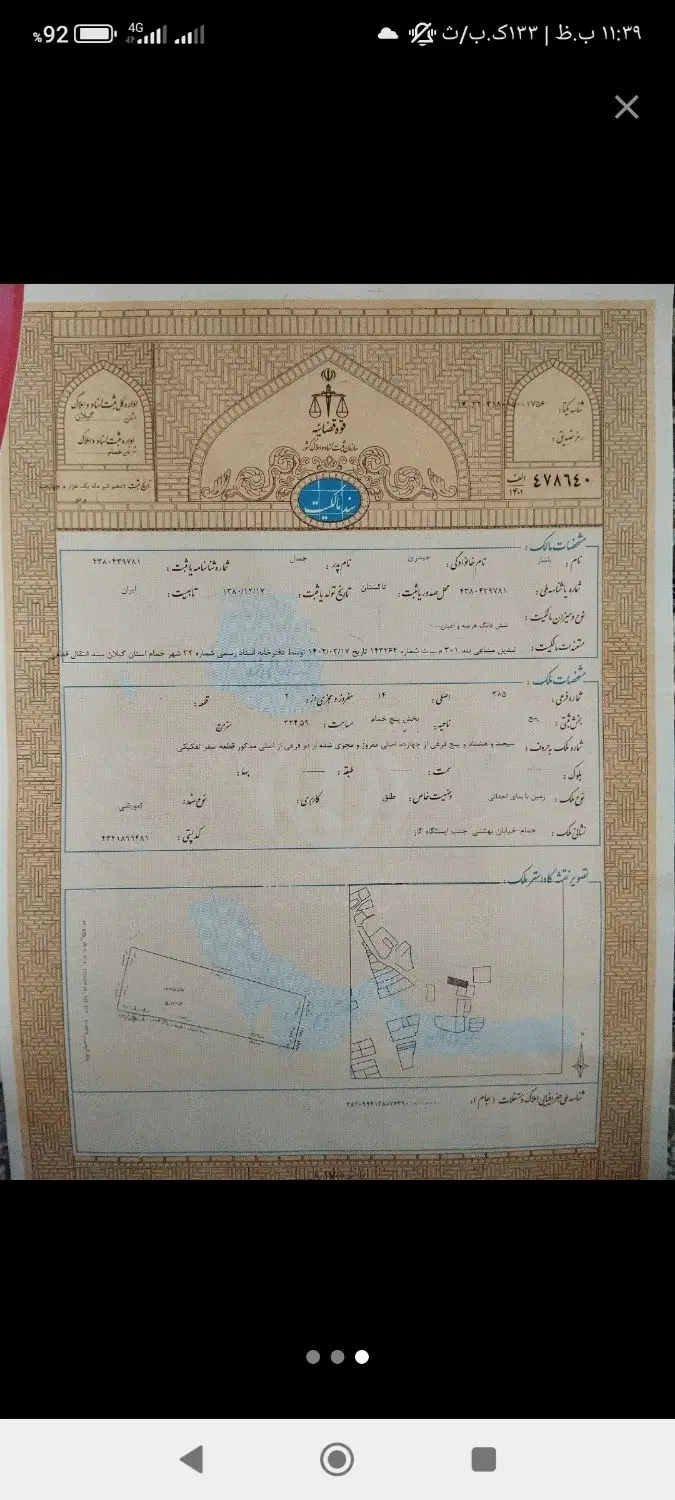 ۱۱:۳۹ ب.ظ | ۱۳۳ک.ب/ث
4G
%92
قوه قضائیه
سازمان ثبت اسناد و املاک کشور
سند مالکیت
اداره کل ثبت اسناد و املاک
استان گیلان
اداره ثبت اسناد و املاک
خمام
تاریخ ثبت: دهم تیر ماه یک هزار و چهارصد و دو
شناسه یکتا:
رمز تصدیق:
۴۷۸۶۴۰ الف ۱۴۰۱
مشخصات مالک:
نام: نام خانوادگی: حیدری نام پدر: جمال شماره شناسنامه یا ثبت: ۴۳۸۰۴۳۹۷۸۱
شماره یا شناسه ملی: ۴۳۸۰۴۳۹۷۸۱ محل صدور یا ثبت: تاکستان تاریخ تولد یا ثبت: ۱۳۸۰/۱۲/۱۷ تابعیت: ایران
نوع و میزان مالکیت: شش دانگ عرصه و اعیان
مستندات مالکیت: تبدیل مشاعی بند ۳۰۱ م.ب.ث شماره ۱۴۳۲۶۴ تاریخ ۱۴۰۲/۰۲/۱۷ توسط دفترخانه اسناد رسمی شماره ۲۲ شهر خمام استان گیلان سند انتقال قطعی
مشخصات ملک:
شماره فرعی: ۳۸۵ اصلی: ۱۴ مفروز و مجزی از: ۲ قطعه: ۰
بخش ثبتی: پنج ناحیه: بخش پنج خمام مساحت: ۲۲۴.۵۹ مترمربع
شماره ملک به حروف: سیصد و هشتاد و پنج فرعی از چهارده اصلی مفروز و مجزی شده از دو فرعی از اصلی مذکور قطعه صفر تفکیکی
بلوک: سمت: طبقه: بها:
نوع ملک: زمین با بنای احداثی وضعیت خاص: طلق کاربری: نوع سند: تعویضی
نشانی ملک: خمام خیابان بهشتی جنب ایستگاه گاز کدپستی: ۴۳۴۱۸۶۶۴۸۱
تصویر نقشه کاداستر ملک:
شناسه ملی جغرافیایی املاک و مستغلات (جام):